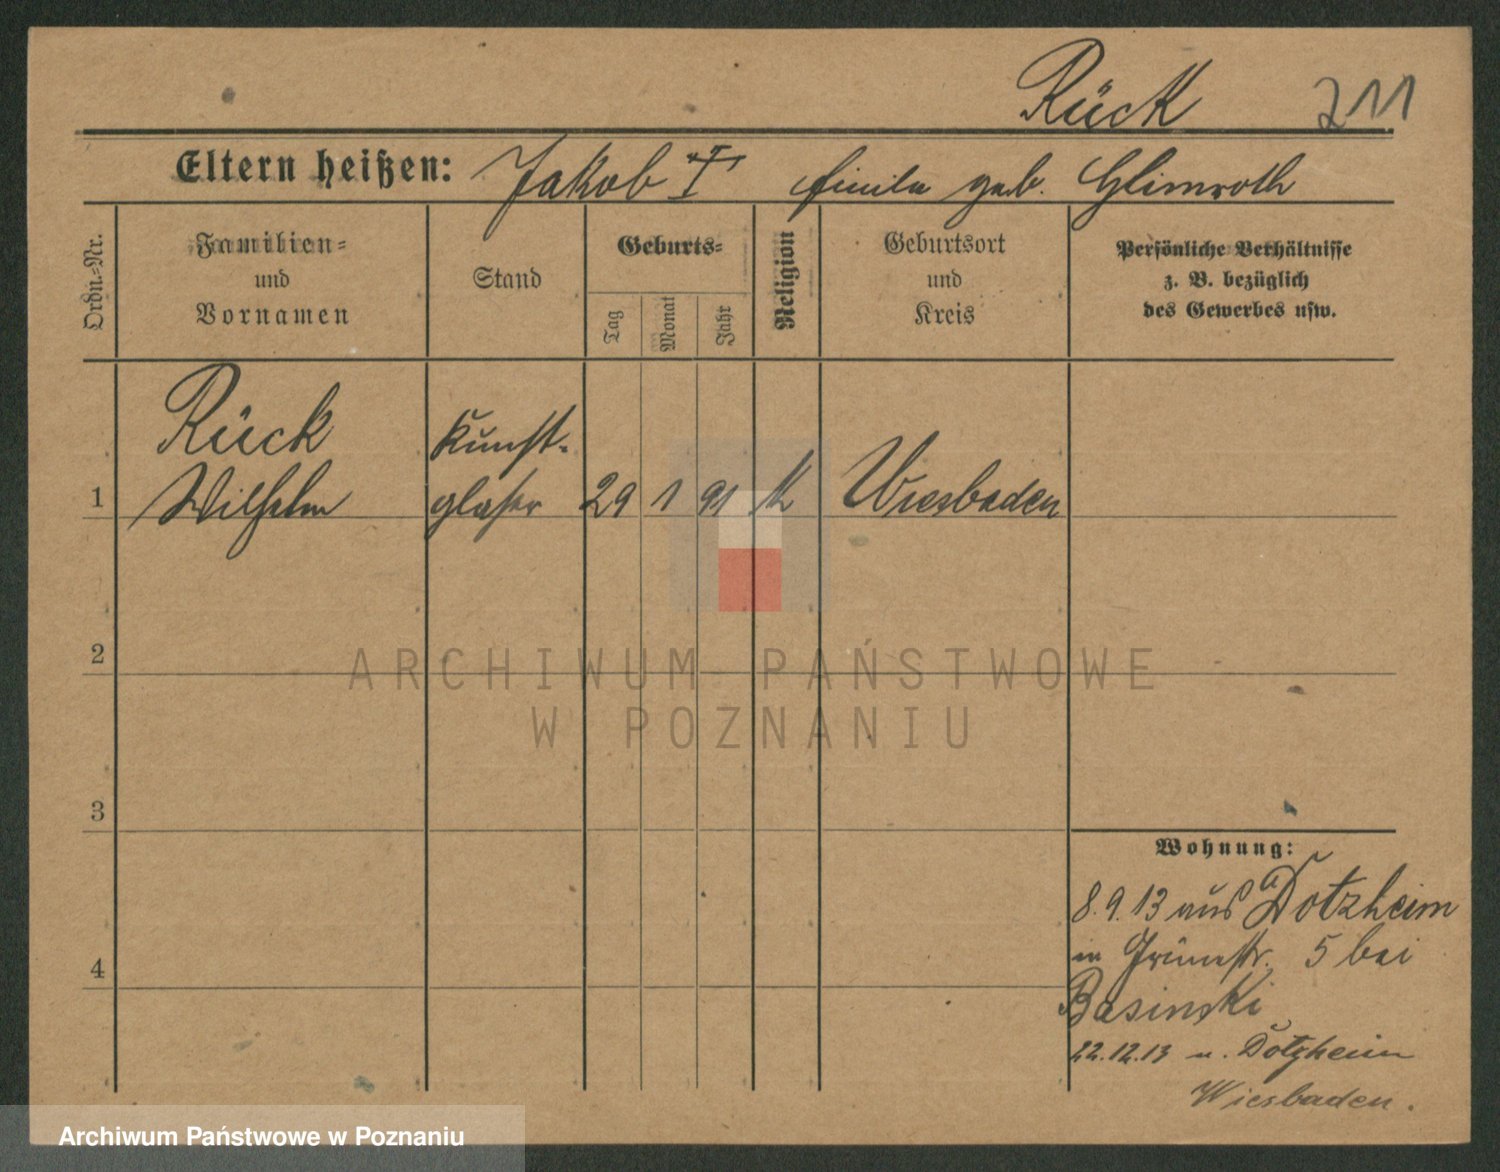 Rück 211
Eltern heißen: Jakob I geb. Glimroth
Ordn.-Nr.
Familien-
und
Vornamen
Stand
Geburts-
Tag
Monat
Jahr
Religion
Geburtsort
und
Kreis
Persönliche Verhältnisse
z. B. bezüglich
des Gewerbes usw.
Rück Kunst-
1 Wilhelm glaser 29 1 91 k Wiesbaden
2
3
4
Wohnung:
8.9.13 aus Dotzheim
in Grünestr. 5 bei
Basinski
22.12.13 n. Dotzheim
Wiesbaden.
ARCHIWUM PAŃSTWOWE
W POZNANIU
Archiwum Państwowe w Poznaniu